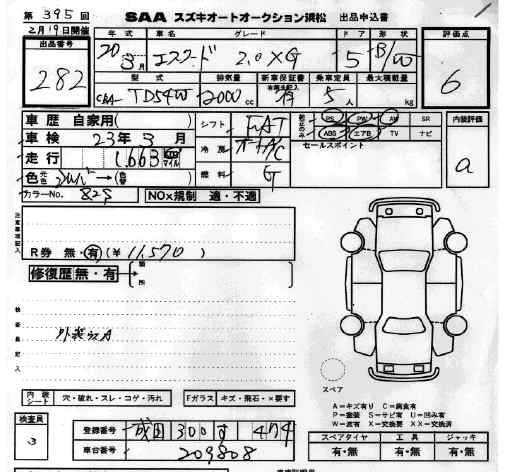 第 395 回 SAA スズキオートオークション浜松 出品申込書
2月19日開催
出品番号 282
年式 車名 グレード ドア 形状 評価点
20年 3月 エスクード 2.0XG 5 B/W 6
型式 排気量 新車保証書 乗車定員 最大積載量
CBA- TD54W 2000cc 有 5人 kg
車歴 自家用( ) シフト FAT PS PW AW SR 内装評価
車検 23年 3月 冷房 オートA/C ABS エアB TV ナビ a
走行 1,663 マイル 燃料 G セールスポイント
色 元色 シルバー→( )
カラーNo. 82S NOx規制 適・不適
注意事項記入
R券 無・有(¥ 11,570 )
修復歴 無・有 箇所
検査員記入
外装ウスA
スペア
内装 シート 穴・破れ・スレ・コゲ・汚れ Fガラス キズ・飛石・×要す
A=キズ有り C=腐食有
P=塗装 S=サビ有 U=凹み有
W=波有 X=交換要 XX=交換済
検査員 3
登録番号 成田 300 す 474
車台番号 209808
スペアタイヤ 工具 ジャッキ
有・無 有・無 有・無